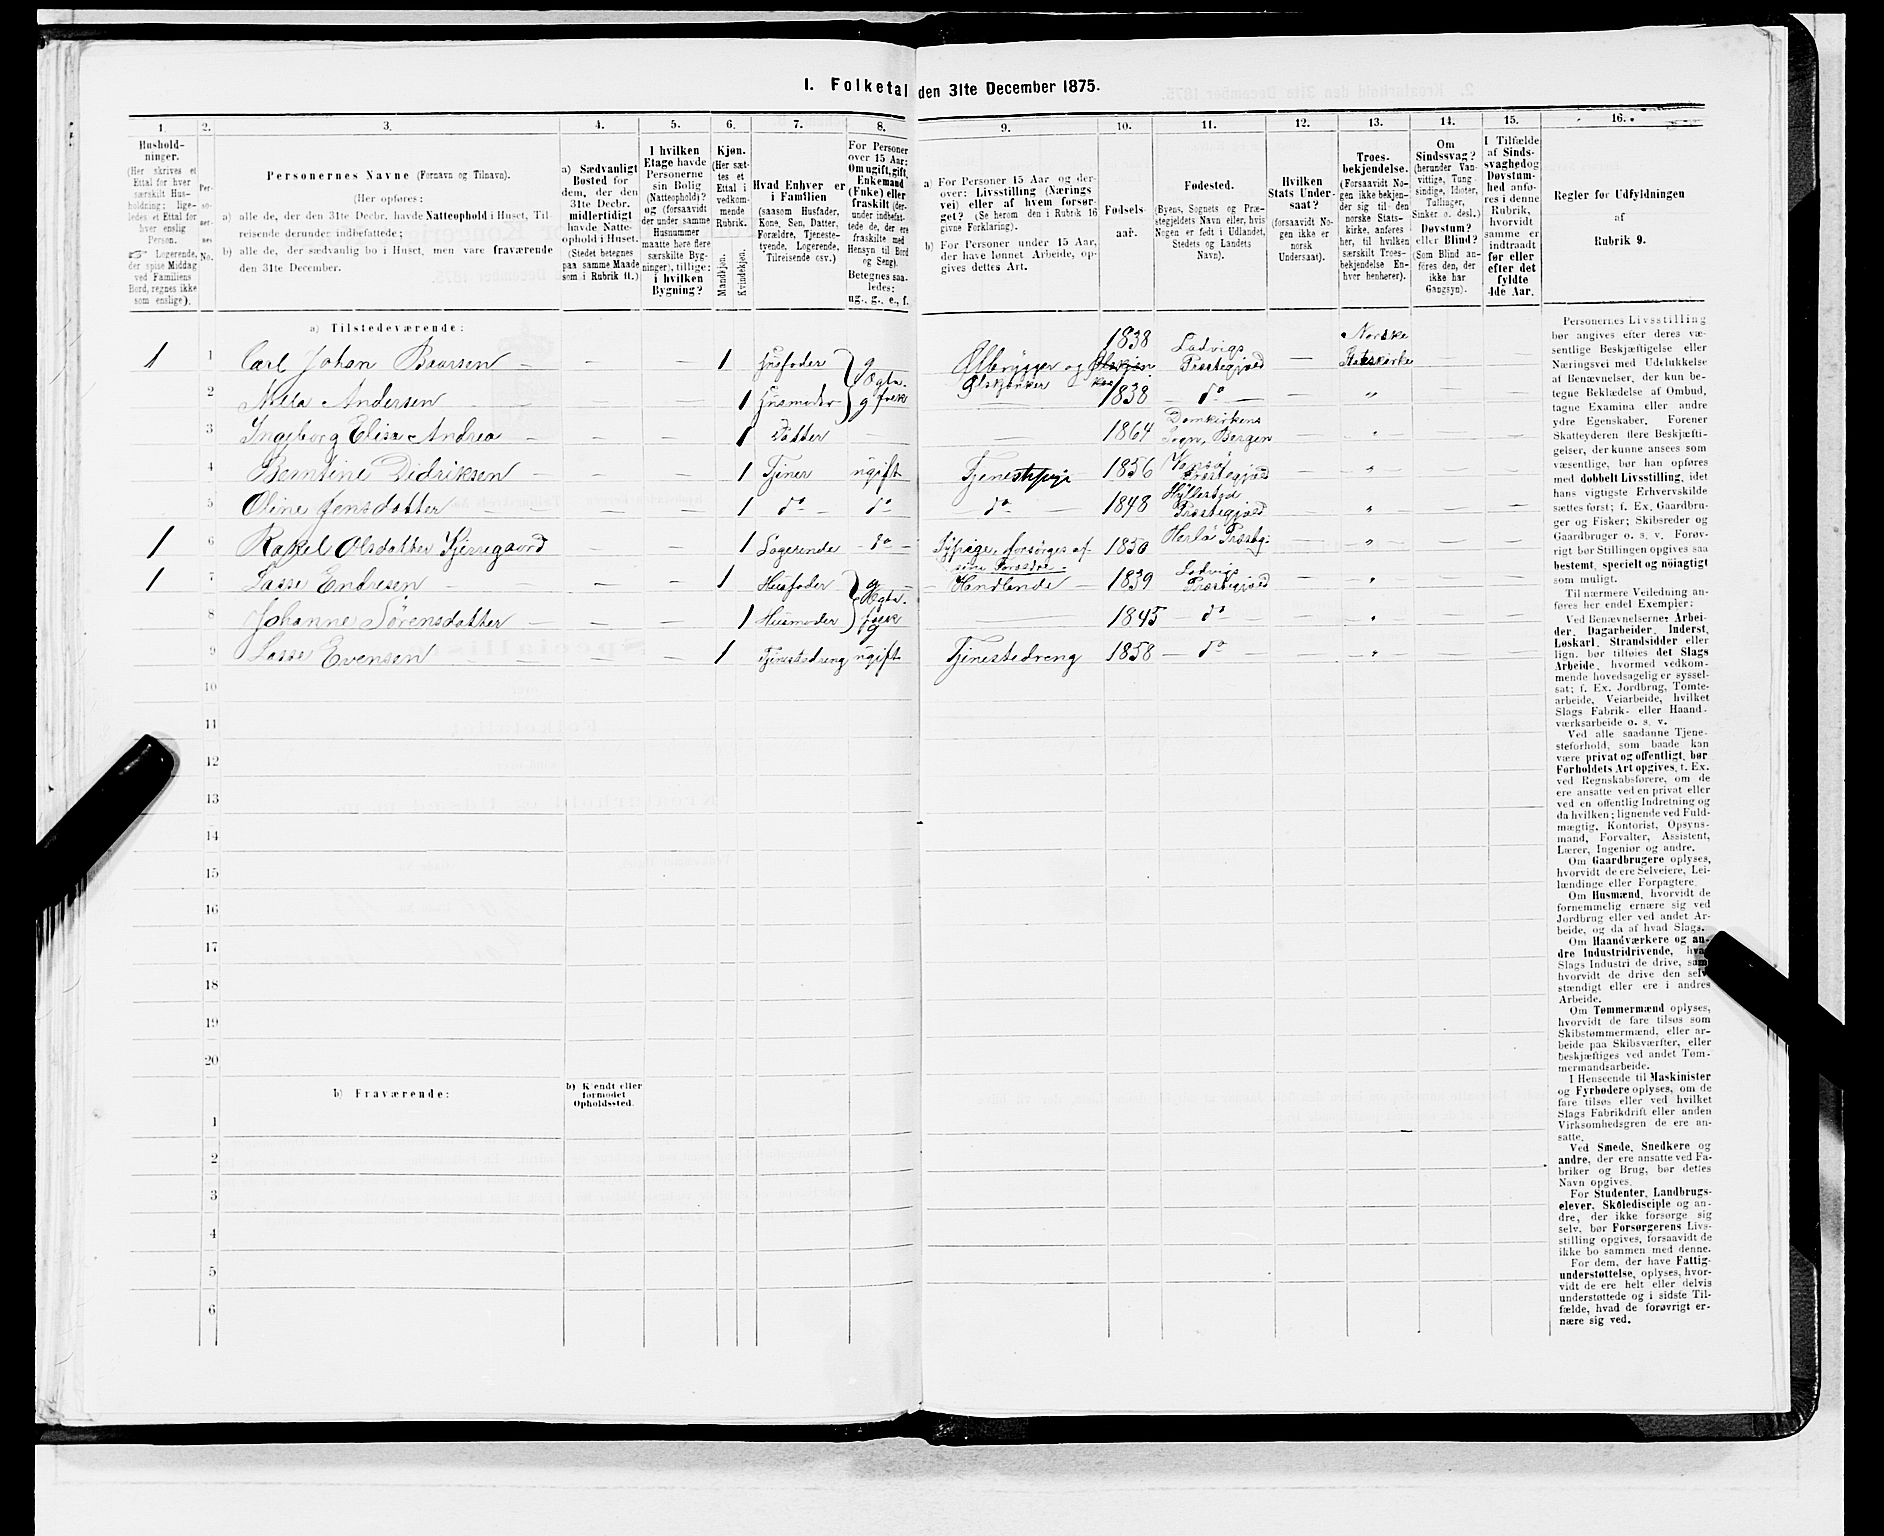 I. Folketal den 31te December 1875.
1. 2. 3. 4. 5. 6. 7. 8. 9. 10. 11. 12. 13. 14. 15. 16.
Hushold-
ninger.
(Her skrives et
Ettal for hver
særskilt Hus-
holdning; lige-
ledes et Ettal for
hver enslig
Person.
Logerende,
der spise Middag
ved Familiens
Bord, regnes ikke
som enslige).
Per-
so-
ner-
nes
No.
Personernes Navne (Fornavn og Tilnavn).
(Her opføres:
a) alle de, der den 31te Decbr. havde Natteophold i Huset, Til-
reisende derunder indbefattede;
b) alle de, der sædvanlig bo i Huset, men vare fraværende
den 31te December.
a) Sædvanligt
Bosted for
dem, der den
31te Decbr.
midlertidigt
havde Natte-
ophold i Huset.
(Stedet betegnes
paa samme Maade
som i Rubrik 11.)
I hvilken
Etage havde
Personerne
sin Bolig
(Natteophold)?
og (forsaavidt
der under samme
Husnummer
maatte høre flere
særskilte Byg-
ninger), tillige:
i hvilken
Bygning?
Kjøn.
(Her sæt-
tes et
Ettal i
vedkom-
mende
Rubrik.
Mandkjøn.
Kvindekjøn.
Hvad Enhver er
i Familien
(saasom Husfader,
Kone, Søn, Datter,
Forældre, Tjeneste-
tyende, Logerende,
Tilreisende osv.)
For Personer
over 15 Aar:
Om ugift, gift,
Enkemand
(Enke) eller
fraskilt (der-
under indbefat-
tede de, der ere
fraskilte med
Hensyn til Bord
og Seng).
Betegnes saa-
ledes:
ug., g., e., f.
a) For Personer 15 Aar og der-
over: Livsstilling (Nærings
vei) eller af hvem forsør-
get? (Se herom den i Rubrik 16
givne Forklaring).
b) For Personer under 15 Aar,
der have lønnet Arbeide, op-
gives dettes Art.
Fødsels-
aar.
Fødested.
(Byens, Sognets og Præ-
stegjeldets Navn eller, hvis
Nogen er født i Udlandet,
Stedets og Landets
Navn).
Hvilken
Stats Under-
saat?
(forsaavidt No-
gen ikke er
norsk
Undersaat).
Troes-
bekjendelse.
(Forsaavidt No-
gen ikke bekjen-
der sig til den
norske Stats-
kirke, anføres
her, til hvilken
særskilt Troes-
bekjendelse En-
hver henhører).
Om
Sindssvag?
(herunder Van-
vittige, Tung-
sindige, Idioter,
Tullinger,
Sinker o. desl.)
Døvstum?
eller Blind?
(Som Blind an-
føres den, der
ikke har
Gangsyn).
I Tilfælde
af Sinds-
svaghed og
Døvstum-
hed anfø-
res i denne
Rubrik,
hvorvidt
samme er
indtraadt
før eller
efter det
fyldte
4de Aar.
Regler for Udfyldningen
af
Rubrik 9.
a) Tilstedeværende:
1 1 Carl Johan — — — 1 Husfader g Ølbrygger og Ølskjænker 1838 Ladvigs Præstegjæld — Norske Statskirke —
2 Andersen — — — 1 Husmoder g Egtefolk 1838 — do — — " —
3 Ingeborg Elise Andrea — — — 1 Datter — — 1864 Domkirkens Sogn, Bergen — " —
4 Berntine Didriksen — — — 1 Tjener ugift Tjenestepige 1856 Præstegjæld — " —
5 Oline Jensdatter — — — 1 do — do — do — 1848 Hyllestad Præstegjæld — " —
1 6 Rakel Olsdatter — — 1 Logerende — do — forsørges af sine Forældre. 1850 Herlø Præstg: — " —
1 7 Lasse Endresen — — — 1 Husfader g — Handlende — 1839 Ladvigs Præstegjæld — " —
8 Johanne Sörensdatter — — — 1 Husmoder g Egtefolk — 1845 do — " —
9 Lasse Evensen — — — 1 Tjenestedreng ugift Tjenestedreng 1858 — do — — " —
10
11
12
13
14
15
16
17
18
19
20
b) Fraværende:
b) Kjendt eller
formodet
Opholdssted.
1
2
3
4
5
6
Personernes Livsstilling
bør angives efter deres væ-
sentlige Beskjæftigelse eller
Næringsvei med Udelukkelse
af Benævnelser, der kun be-
tegne Beklædelse af Ombud,
tagne Examina eller andre
ydre Egenskaber. Forener
Skatteyderen flere Beskjæfti-
gelser, der kunne ansees som
væsentlige, bør han opføres
med dobbelt Livsstilling, idet
hans vigtigste Erhvervskilde
sættes først; f. Ex. Gaardbru-
ger og Fisker; Skibsreder og
Gaardbruger o. s. v. Forøv-
rigt bør Stillingen opgives saa
bestemt, specielt og nøiagtigt
som muligt.
Til nærmere Veiledning an-
føres her endel Exempler:
Ved Benævnelserne: Arbei-
der, Dagarbeider, Inderst,
Løskarl, Strandsidder eller
lign. bør tilføies det Slags
Arbeide, hvormed vedkom-
mende hovedsagelig er syssel-
sat; f. Ex. Jordbrug, Tomte-
arbeide, Veiarbeide, hvilket
Slags Fabrik- eller Haand-
værksarbeide o. s. v.
Ved alle saadanne Tjene-
steforhold, som baade kan
være privat og offentligt, bør
Forholdets Art opgives, t. Ex.
ved Regnskabsførere, om de
ere ansatte ved en privat eller
ved en offentlig Indretning og
da hvilken; lignende ved Fuld-
mægtig, Kontorist, Opsyns-
mand, Forvalter, Assistent,
Lærer, Ingeniør og andre.
Om Gaardbrugere oplyses,
hvorvidt de ere Selveiere, Lei-
lændinge eller Forpagtere.
Om Husmænd, hvorvidt de
fornemmelig ernære sig ved
Jordbrug eller ved andet Ar-
beide, og da af hvad Slags.
Om Haandværkere og an-
dre Industridrivende, hvad
Slags Industri de drive, samt
hvorvidt de drive den selv-
stændigt eller ere i andres
Arbeide.
Om Tømmermænd oplyses,
hvorvidt de fare tilsøs som
Skibstømmermænd, eller ar-
beide paa Skibsværfter, eller
beskjæftiges ved andet Tøm-
mermandsarbeide.
I Henseende til Maskinister
og Fyrbødere oplyses, om de
fare tilsøs eller ved hvilket
Slags Fabrikdrift eller anden
Virksomhedsgren de ere an-
satte.
Ved Smede, Snedkere og
andre, der ere ansatte ved Fa-
briker og Brug, bør dettes
Navn opgives.
For Studenter, Landbrugs-
elever, Skoledisciple og an-
dre, der ikke forsørge sig
selv, bør Forsørgerens Livs-
stilling opgives, forsaavidt de
ikke bo sammen med denne.
For dem, der have Fattig-
understøttelse, oplyses, hvor-
vidt de ere helt eller delvis
understøttede og i sidste Til-
fælde, hvad de forøvrigt er-
nære sig ved.